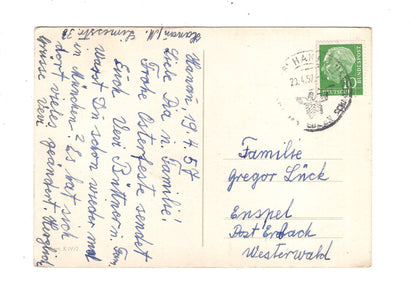 Hanau/M. Limesstr. 30
Hanau, 19.4.57
Liebe Dia u. Familie!
Frohe Osterfest sendet
Euch Veri Büttner u. Fam.
Warst Du schon wieder mal
in München? Es hat sich
dort vieles geändert. Herzlich
grüsse Veri
HANAU
20.4.57
DEUTSCHE BUNDESPOST
10
Familie
Gregor Lück
Enspel
Post Erbach
Westerwald